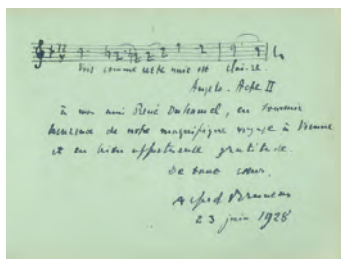 Vois comme cette nuit est clai-re.
Angelo - Acte II
à mon ami René Duhamel, en souvenir
heureux de notre magnifique voyage à Vienne
et en bien affectueuse gratitude.
De tout cœur.
Alfred Bruneau
23 juin 1928